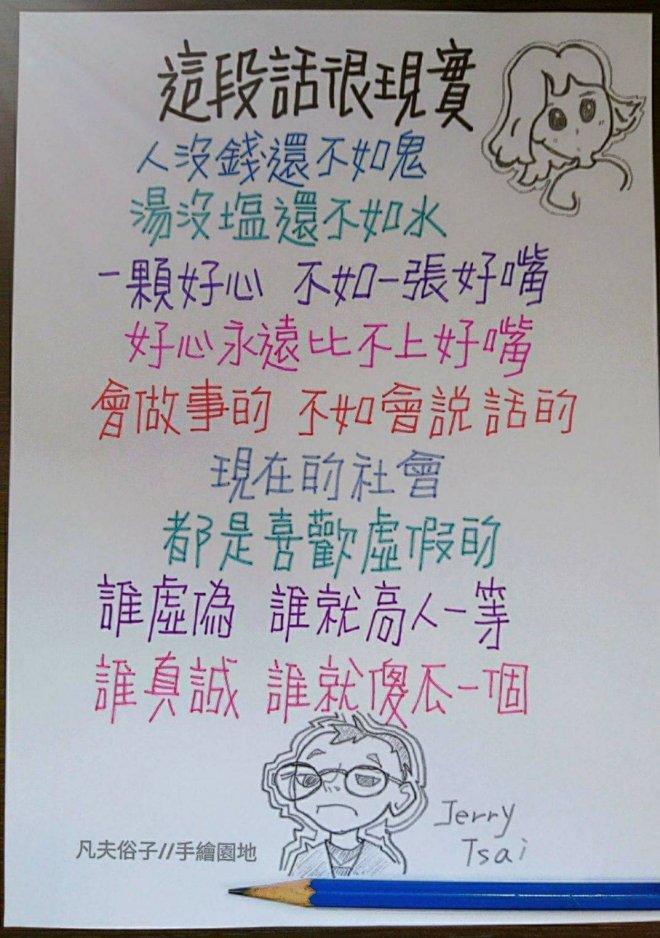 這段話很現實
人沒錢還不如鬼
湯沒塩還不如水
一顆好心 不如一張好嘴
好心永遠比不上好嘴
會做事的 不如會説話的
現在的社會
都是喜歡虛假的
誰虛偽 誰就高人一等
誰真誠 誰就傻瓜一個
Jerry
Tsai
凡夫俗子//手繪園地